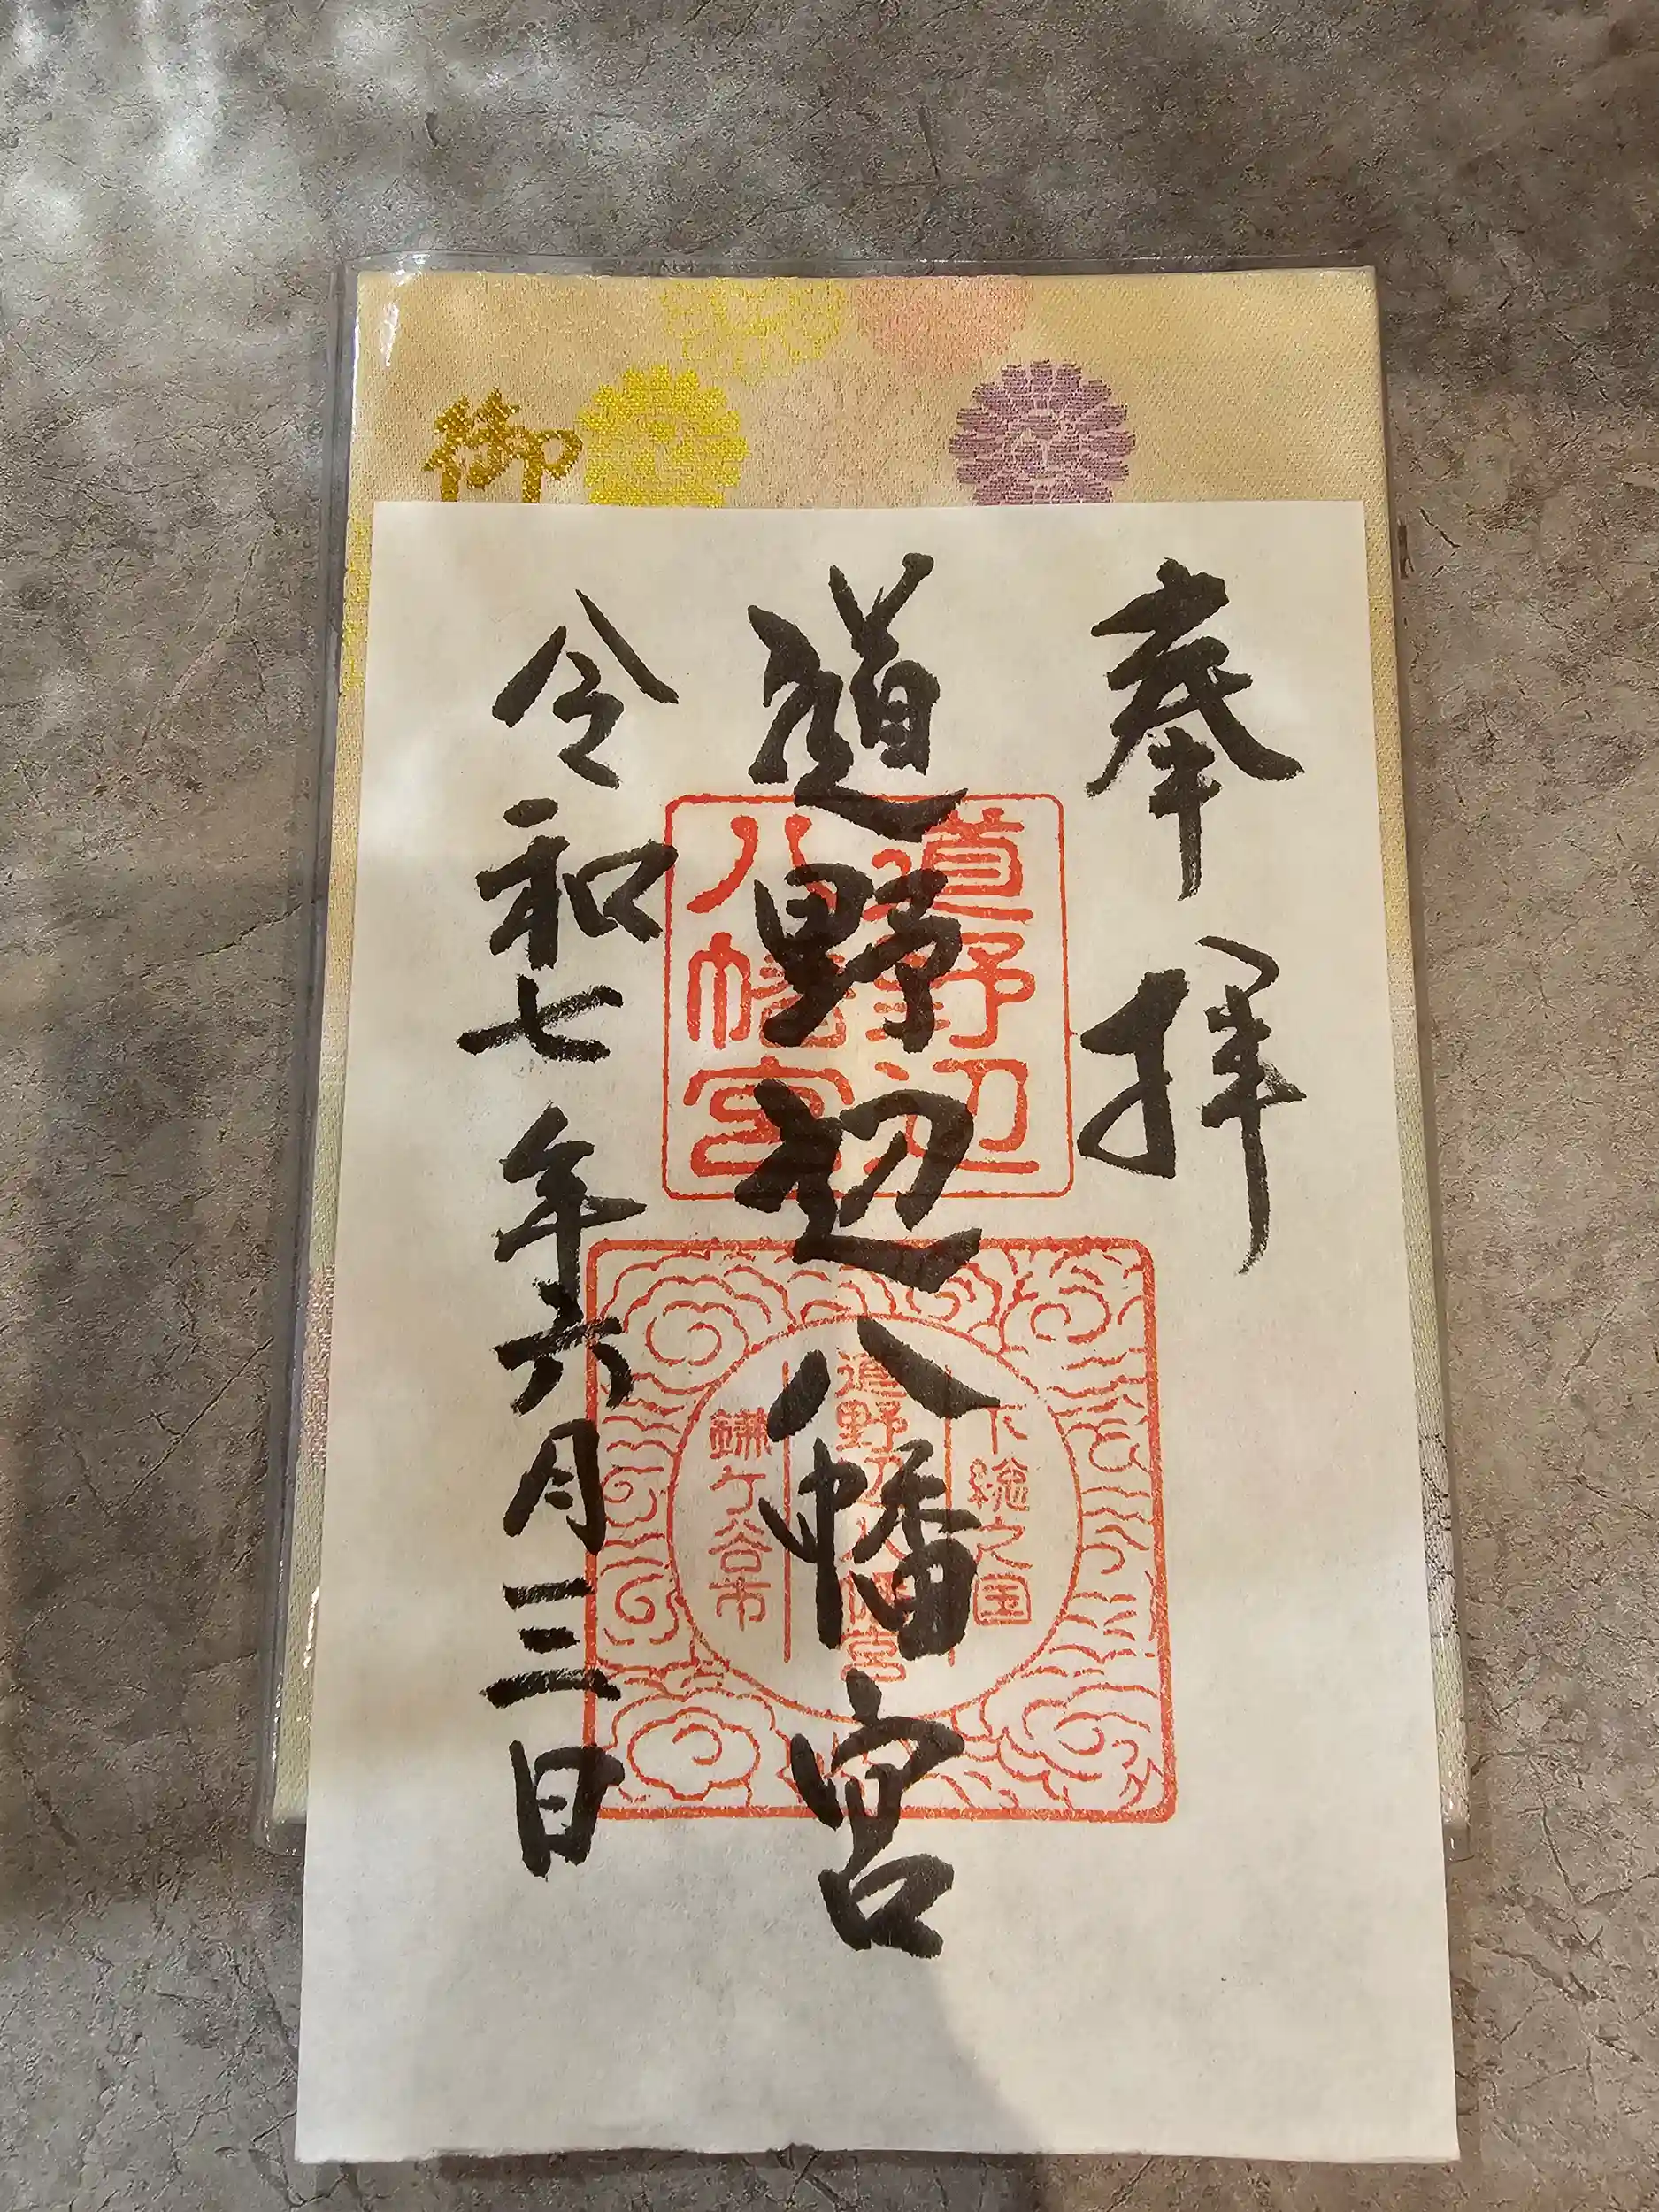 御
奉拝
道野辺八幡宮
令和七年六月三日
道野辺
八幡宮
下総之国
道野辺八幡宮
鎌ケ谷市